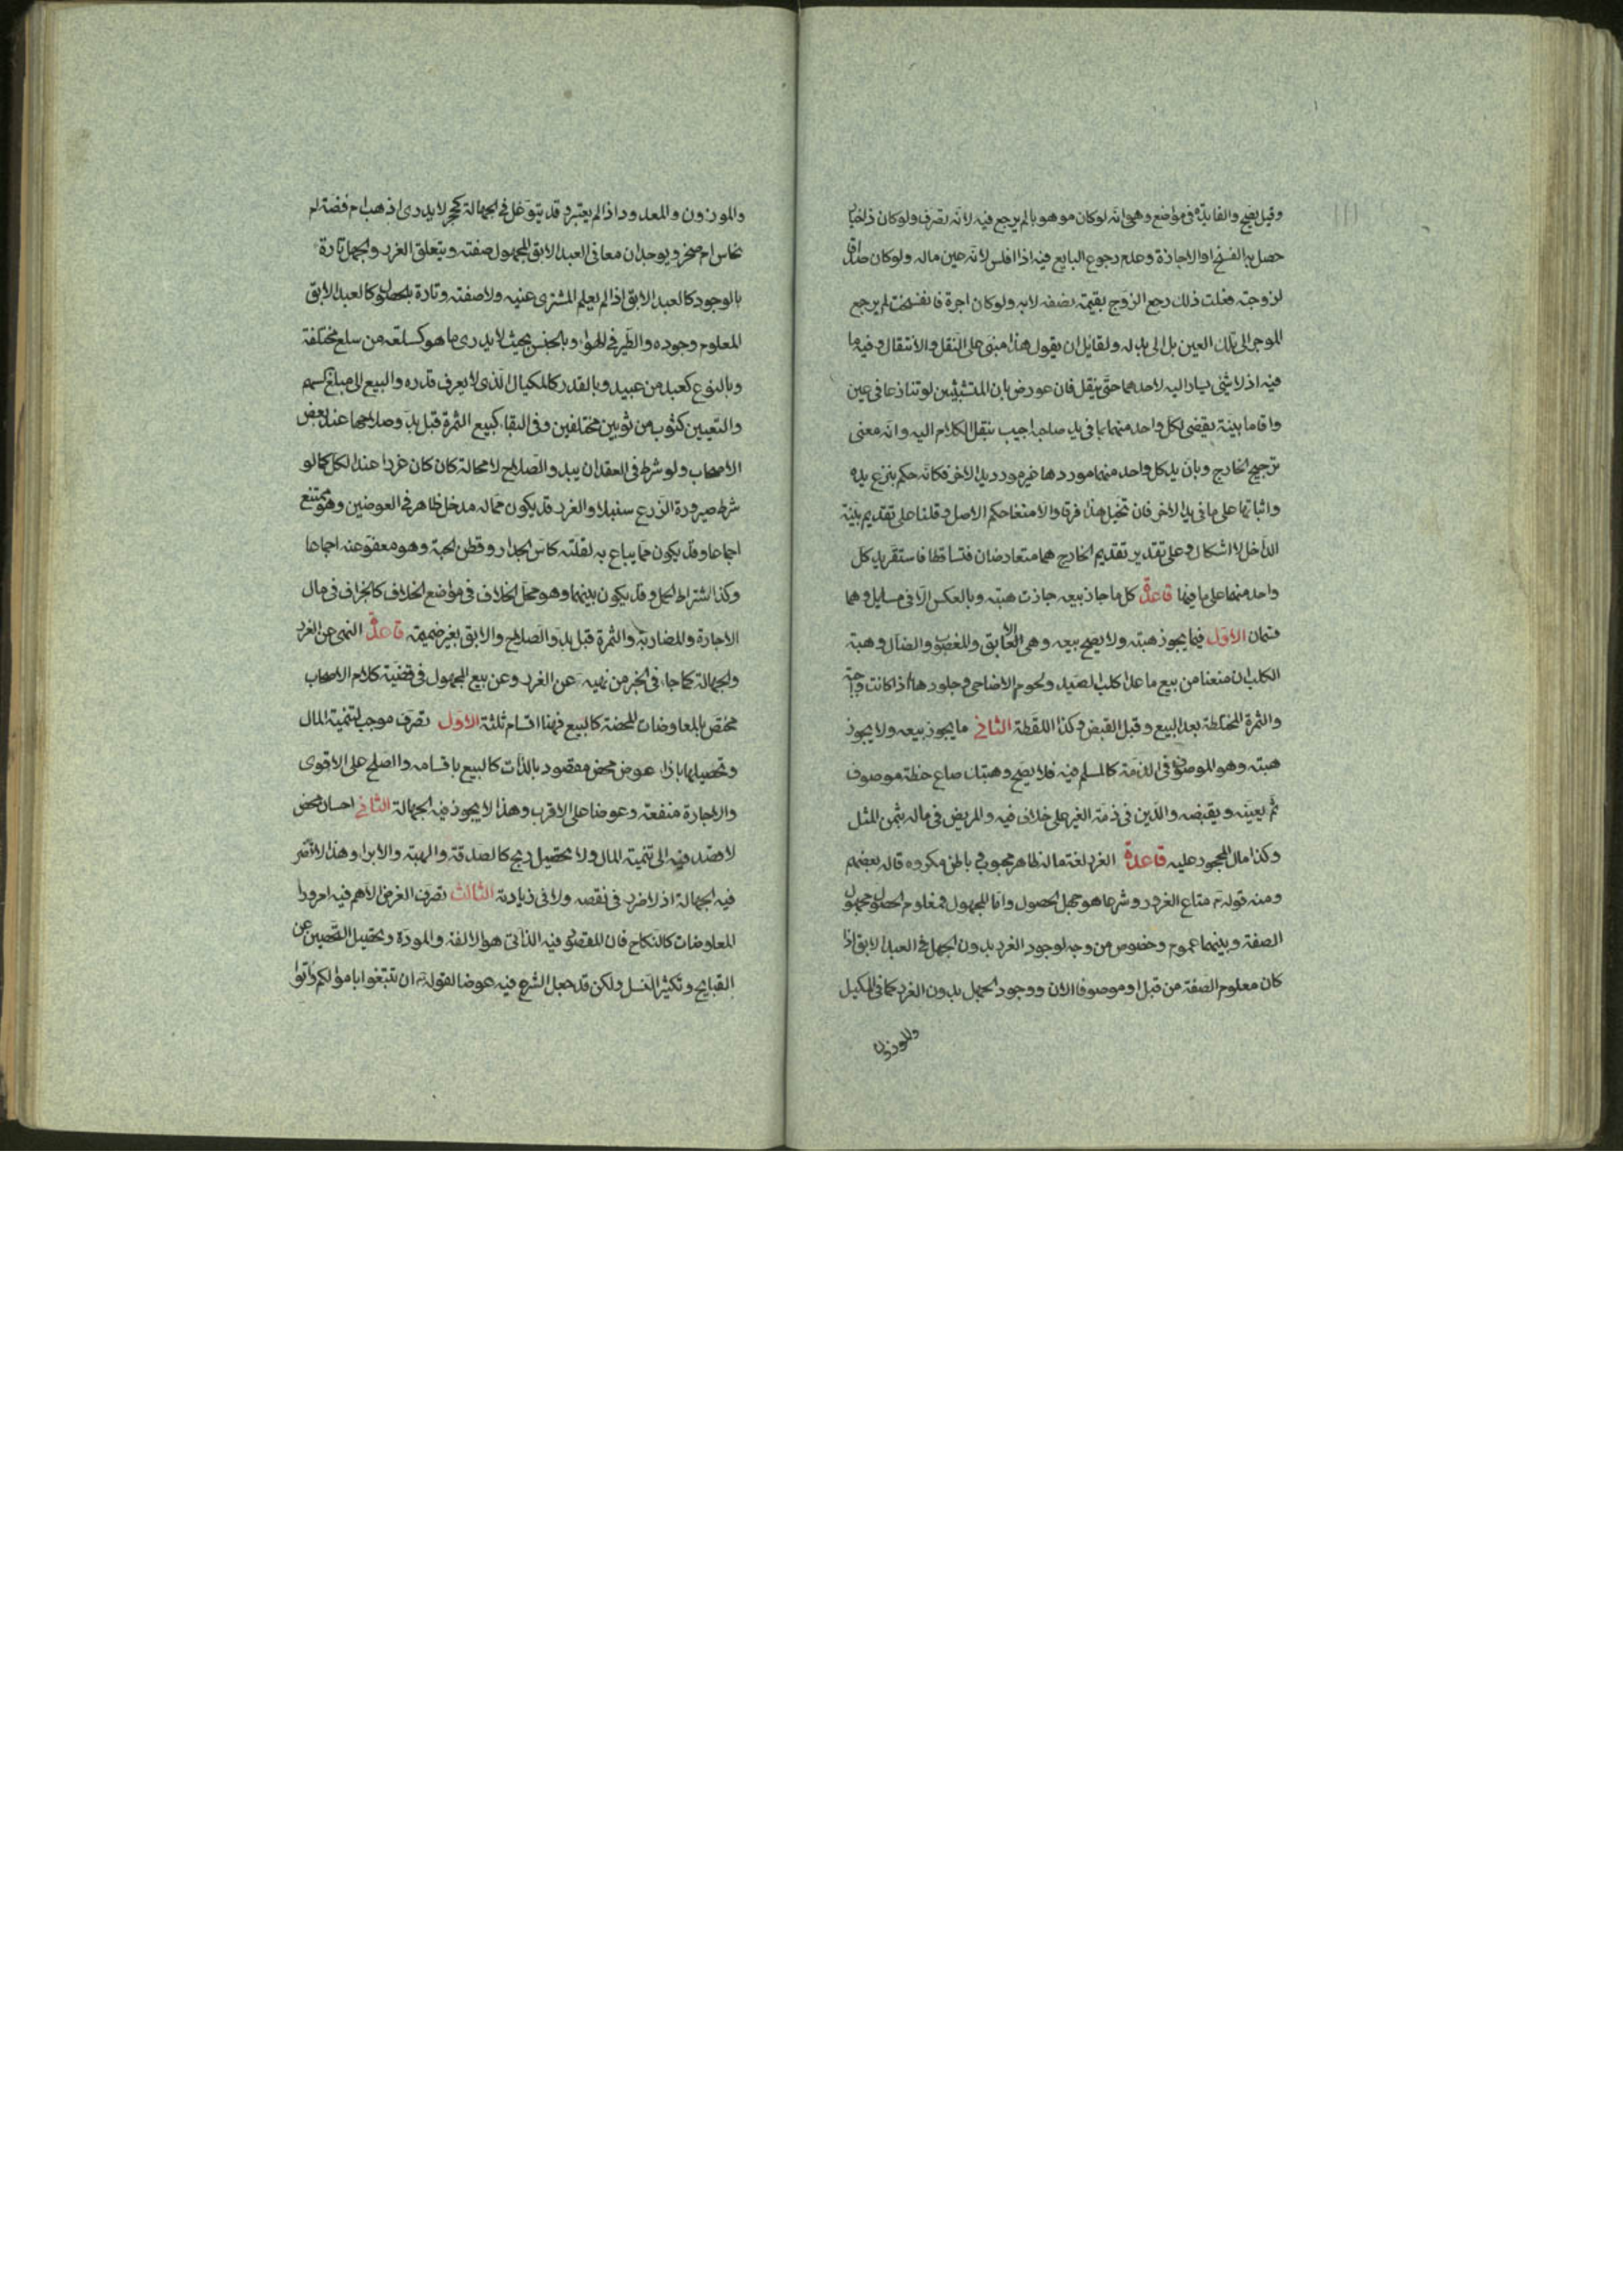 وقيل يصح والفايدة فى مواضع وهى انه لو كان موهوبا لم يرجع فيه لانه تصرف ولو كان ذا خيار
حصل به الفسخ او الاجازة وعدم رجوع البايع فيه اذا افلس لانه عين ماله ولو كان صداقا
لزوجته فعلت ذلك رجع الزوج بقيمة نصفه لابه ولو كان اجرة فانفسخت لم يرجع
الموجر الى تلك العين بل الى بدله ولقايل ان يقول هذا مبنى على النقل والانتقال وفيه ما
فيه اذ لا شئ يشار اليه لاحدهما حتى ينقل فان عورض بان المتشبثين لو تنازعا فى عين
واقاما بينة يقضى لكل واحد منهما بما فى يد صاحبه اجيب بنقل الكلام اليه وانه معنى
ترجيح الخارج وبان يد كل واحد منهما موردها غير مورد يد الاخر فكانه حكم بنزع يده
واثباتها على ما فى يد الاخر فان تخيل هذا فرقا والا منعنا حكم الاصل وقلنا على تقديم بينة
الداخل لا اشكال وعلى تقدير تقديم الخارج هما متعارضان فتساقطا فاستقر يد كل
واحد منهما على ما فيها قاعدة كل ما جاز بيعه جازت هبته وبالعكس الا فى مسايل وهما
قسمان الاول فيما يجوز هبته ولا يصح بيعه وهى الابق والمغصوب والضال وهبة
الكلب ان منعنا من بيع ما عدا كلب الصيد ولحوم الاضاحى وجلودها اذا كانت واجبة
والثمرة المختلطة بعد البيع وقبل القبض وكذا اللقطة الثانى ما يجوز بيعه ولا يجوز
هبته وهو الموصوف فى الذمة كالمسلم فيه فلا يصح وهبتك صاع حنطة موصوف
ثم يعينه ويقبضه والدين فى ذمة الغير على خلاف فيه والمريض فى ماله بثمن المثل
وكذا مال المحجور عليه قاعدة الغرر لغة ما له ظاهر محبوب وباطن مكروه قاله بعضهم
ومنه قوله تع متاع الغرور وشرعا هو جهل الحصول واما المجهول فمعلوم الحصول مجهول
الصفة وبينهما عموم وخصوص من وجه لوجود الغرر بدون الجهل فى العبد الابق اذا
كان معلوم الصفة من قبل او موصوفا الان ووجود الجهل بدون الغرر كما فى المكيل
والموزون
والموزون والمعدود اذا لم يعتبر وقد يتوغل فى الجهالة كحجر لا يدرى اذهب ام فضة ام
نحاس ام صخر ويوجدان معا فى العبد الابق المجهول صفته ويتعلق الغرر والجهل تارة
بالوجود كالعبد الابق اذا لم يعلم المشترى عينه ولا صفته وتارة بالحصول كالعبد الابق
المعلوم وجوده والطير فى الهواء وبالجنس بحيث لا يدرى ما هو كسلعة من سلع مختلفة
وبالنوع كعبد من عبيد وبالقدر كالمكيال الذى لا يعرف قدره والبيع الى مبلغ السهم
والتعيين كثوب من ثوبين مختلفين وفى البقاء كبيع الثمرة قبل بدو صلاحها عند بعض
الاصحاب ولو شرط فى العقد ان يبدو الصلاح لا محالة كان كان غررا عند الكل كما لو
شرط صيرورة الزرع سنبلا والغرر قد يكون مما له مدخل ظاهر فى العوضين وهو ممتنع
اجماعا وقد يكون مما يباع به لقلته كاس الجدار وقطن الجبة وهو معفو عنه اجماعا
وكذا اشتراط الحمل وقد يكون بينهما وهو محل الخلاف فى مواضع الخلاف كالجزاف فى مال
الاجارة والمضاربة والثمرة قبل بدو الصلاح والابق بغير ضميمة قاعدة النهى عن الغرر
والجهالة كما جاء فى الخبر من نهيه عن الغرر وعن بيع المجهول فى قضية كلام الاصحاب
مختص بالمعاوضات المحضة كالبيع فهنا اقسام ثلثة الاول تصرف موجب لتنمية المال
وتحصيلها بازاء عوض محض مقصود بالذات كالبيع باقسامه والصلح على الاقوى
والاجارة منفعة وعوضا على الاقرب وهذا لا يجوز فيه الجهالة الثانى احسان محض
لا قصد فيه الى تنمية المال ولا تحصيل ربح كالصدقة والهبة والابراء وهذا لا تضر
فيه الجهالة اذ لا ضرر فى نقصه ولا فى زيادته الثالث تصرف الغرض الاهم فيه امر وراء
المعاوضات كالنكاح فان المقصود فيه الذاتى هو الالفة والمودة وتحصيل التحصين عن
القبايح وتكثير النسل ولكن قد جعل الشرع فيه عوضا لقوله تع ان تبتغوا باموالكم واتوا